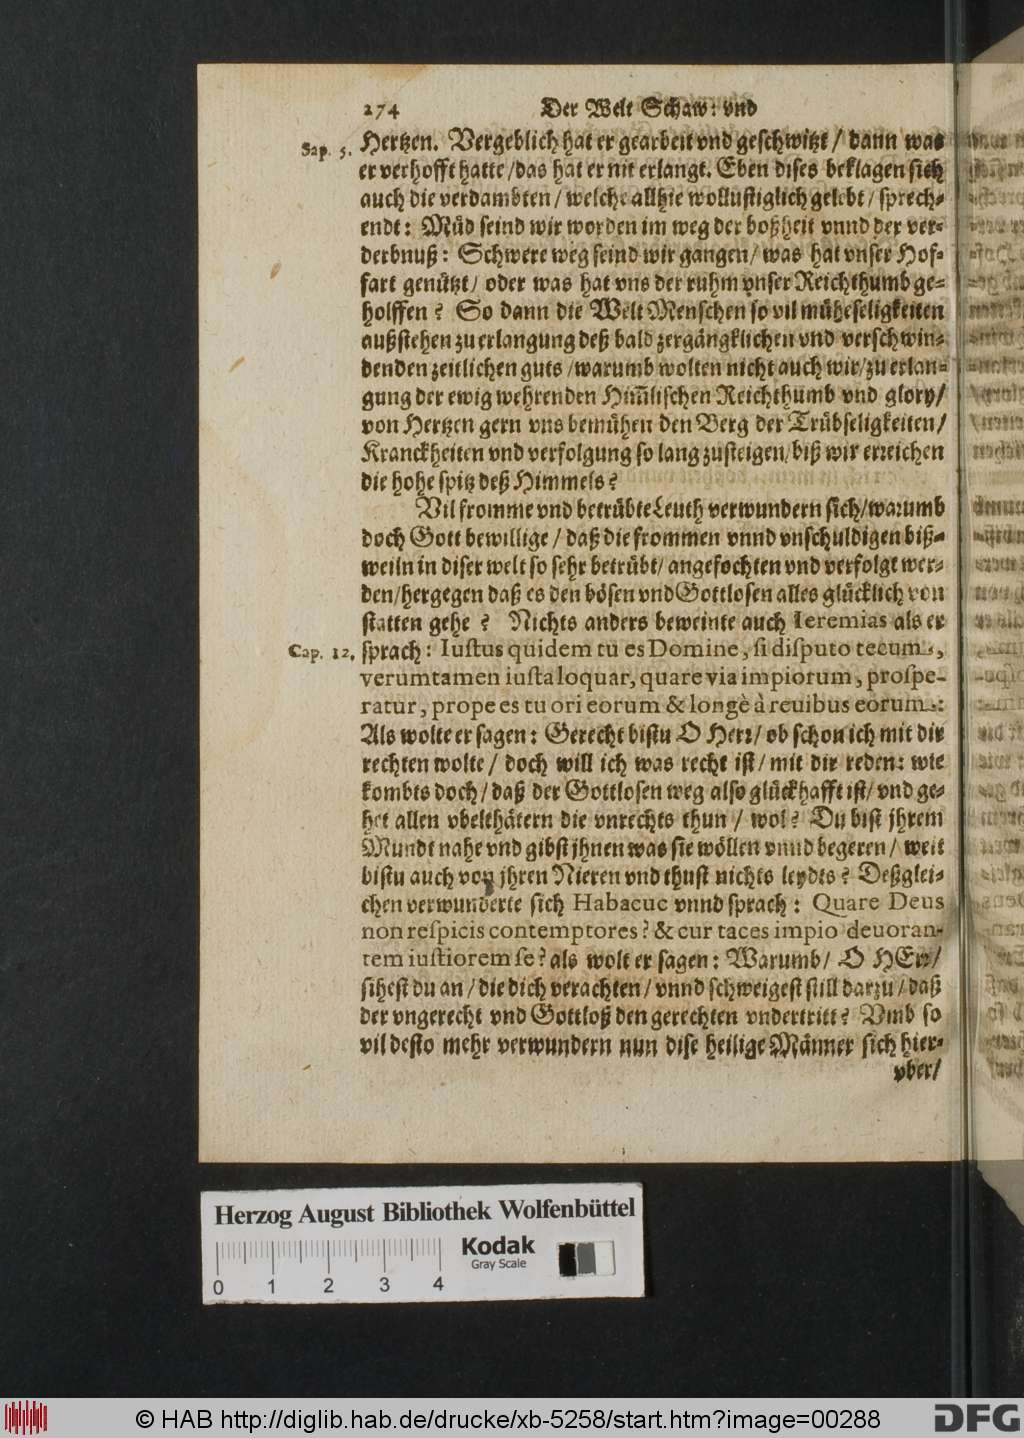 274 Der Welt Schaw: vnd
Sap. 5. Hertzen. Vergeblich hat er gearbeit vnd geschwitzt / dann was
er verhofft hatte / das hat er nit erlangt. Eben dises beklagen sich
auch die verdambten / welche allhie wollustiglich gelebt / sprech-
endt: Müd seind wir worden im weg der boßheit vnnd der ver-
derbnuß: Schwere weg seind wir gangen / was hat vnser Hof-
fart genützt / oder was hat vns der ruhm vnser Reichthumb ge-
holffen? So dann die Welt Menschen so vil müheseligkeiten
außstehen zu erlangung deß bald zergängklichen vnd verschwin-
denden zeitlichen guts / warumb wolten nicht auch wir / zu erlan-
gung der ewig wehrenden Him̃lischen Reichthumb vnd glory /
von Hertzen gern vns bemühen den Berg der Trübseligkeiten /
Kranckheiten vnd verfolgung so lang zusteigen / biß wir erreichen
die hohe spitz deß Himmels?
Vil fromme vnd betrübte Leuth verwundern sich / warumb
doch Gott bewillige / daß die frommen vnnd vnschuldigen biß-
weiln in diser welt so sehr betrübt / angefochten vnd verfolgt wer-
den / hergegen daß es den bösen vnd Gottlosen alles glücklich von
statten gehe? Nichts anders beweinte auch Ieremias als er
Cap. 12. sprach: Iustus quidem tu es Domine, si disputo tecum,
verumtamen iusta loquar, quare via impiorum, prospe-
ratur, prope es tu ori eorum & longè à reuibus eorum:
Als wolte er sagen: Gerecht bistu O Herr / ob schon ich mit dir
rechten wolte / doch will ich was recht ist / mit dir reden: wie
kombts doch / daß der Gottlosen weg also glückhafft ist / vnd ge-
het allen vbelthätern die vnrechts thun / wol? Du bist jhrem
Mundt nahe vnd gibst jhnen was sie wöllen vnnd begeren / weit
bistu auch von jhren Nieren vnd thust nichts leydts? Deßglei-
chen verwunderte sich Habacuc vnnd sprach: Quare Deus
non respicis contemptores? & cur taces impio deuoran-
tem iustiorem se? als wolt er sagen: Warumb / O HErr /
sihest du an / die dich verachten / vnnd schweigest still darzu / daß
der vngerecht vnd Gottloß den gerechten vndertritt? Vmb so
vil desto mehr verwundern nun dise heilige Männer sich hier-
vber /
Herzog August Bibliothek Wolfenbüttel
Kodak
Gray Scale
0 1 2 3 4
© HAB http://diglib.hab.de/drucke/xb-5258/start.htm?image=00288
DFG